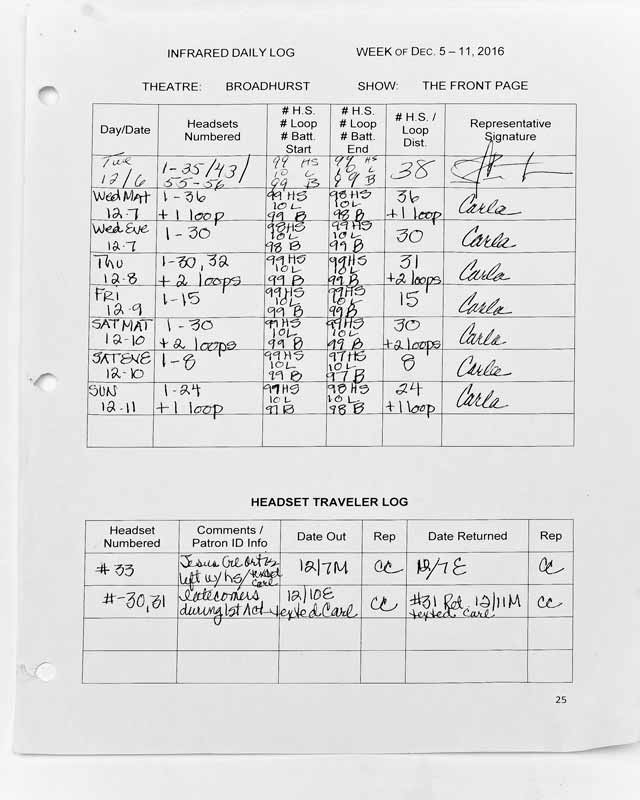 INFRARED DAILY LOG WEEK OF DEC. 5 – 11, 2016
THEATRE: BROADHURST SHOW: THE FRONT PAGE
Day/Date Headsets Numbered # H.S. # Loop # Batt. Start # H.S. # Loop # Batt. End # H.S. / Loop Dist. Representative Signature
Tue 12/6 1-35/43/ 55-56 99 HS 10 L 99 B 99 HS 10 L 99 B 38
Wed Mat 12-7 1-36 +1 loop 99 HS 10 L 99 B 98 HS 10 L 98 B 36 +1 loop Carla
Wed Eve 12-7 1-30 98 HS 10 L 98 B 99 HS 10 L 99 B 30 Carla
Thu 12-8 1-30, 32 +2 loops 99 HS 10 L 99 B 99 HS 10 L 99 B 31 +2 loops Carla
FRI 12-9 1-15 99 HS 10 L 99 B 99 HS 10 L 99 B 15 Carla
SAT MAT 12-10 1-30 +2 loops 99 HS 10 L 99 B 99 HS 10 L 99 B 30 +2 loops Carla
SAT EVE 12-10 1-8 99 HS 10 L 99 B 97 HS 10 L 97 B 8 Carla
SUN 12-11 1-24 +1 loop 97 HS 10 L 97 B 98 HS 10 L 98 B 24 +1 loop Carla
HEADSET TRAVELER LOG
Headset Numbered Comments / Patron ID Info Date Out Rep Date Returned Rep
# 33 Jesus left w/ hs/ texted Carl 12/7M CC 12/7 E CC
#-30,31 latecomers during 1st Act 12/10E texted Carl CC #31 Ret. 12/11M texted Carl CC
25